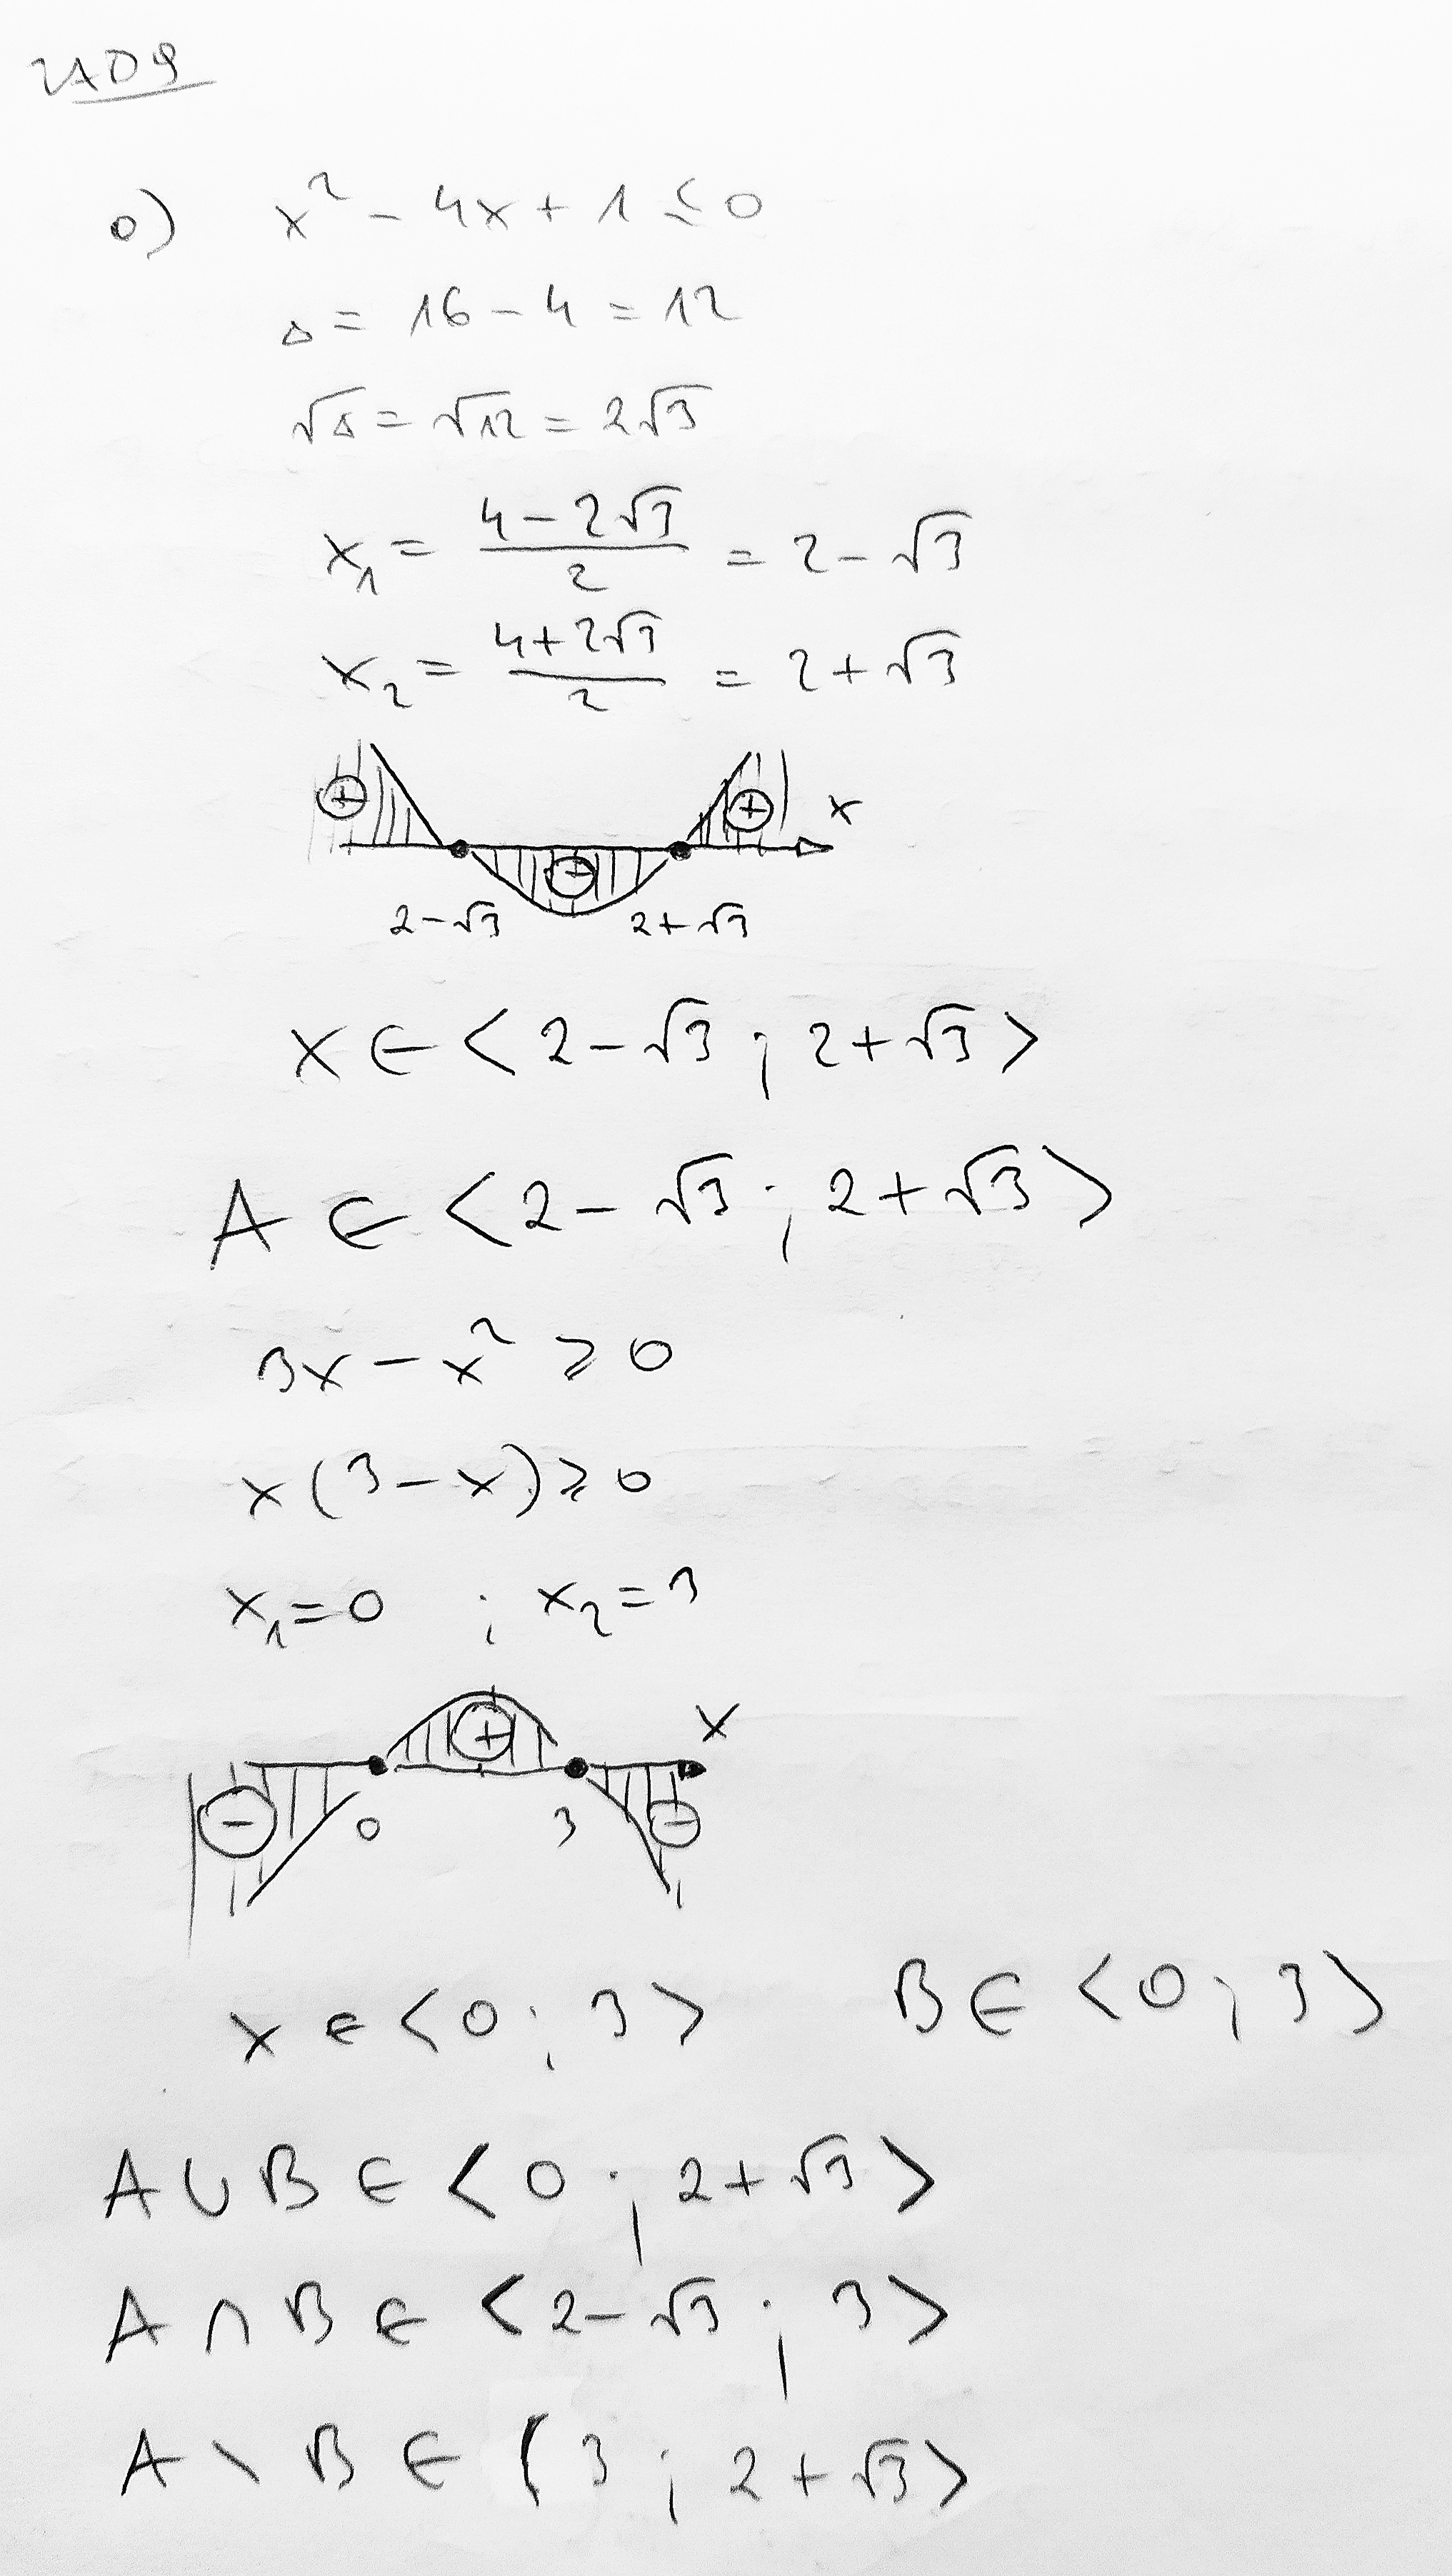 ZAD 9
a) x² - 4x + 1 ≤ 0
Δ = 16 - 4 = 12
√Δ = √12 = 2√3
x₁ = (4 - 2√3)/2 = 2 - √3
x₂ = (4 + 2√3)/2 = 2 + √3
+ - + x
2-√3 2+√3
x ∈ <2-√3 ; 2+√3>
A ∈ <2-√3 ; 2+√3>
3x - x² ≥ 0
x(3-x) ≥ 0
x₁ = 0 ; x₂ = 3
- + - x
0 3
x ∈ <0 ; 3> B ∈ <0 ; 3>
A ∪ B ∈ <0 ; 2+√3>
A ∩ B ∈ <2-√3 ; 3>
A \ B ∈ (3 ; 2+√3>